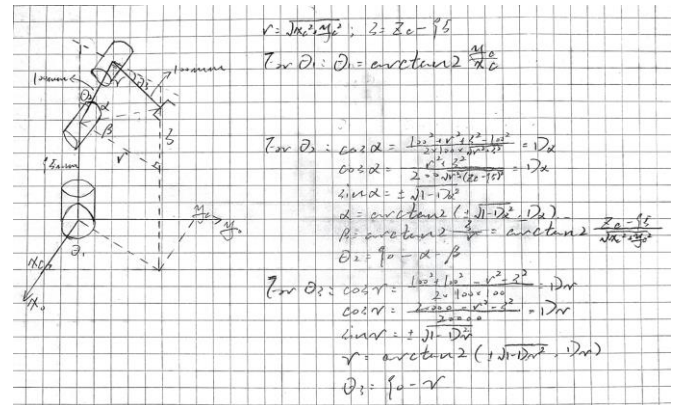 r = √xc²+yc² ; s = zc - 95
For θ1: θ1 = arctan2 yc/xc
For θ2: cosα = 100²+r²+s²-100² / 2×100×√r²+s² = Dα
cosα = r²+s² / 200√r²+(zc-95)² = Dα
sinα = ±√1-Dα²
α = arctan2 (±√1-Dα², Dα)
β = arctan2 s/r = arctan2 zc-95/√xc²+yc²
θ2 = 90 - α - β
For θ3: cosr = 100²+100²-r²-s² / 2×100×100 = Dr
cosr = 20000-r²-s² / 20000 = Dr
sinr = ±√1-Dr²
r = arctan2 (±√1-Dr², Dr)
θ3 = 90 - r
100mm
θ3
100mm
θ2
r
α
β
s
r
95mm
yc
y0
θ1
xc
x0